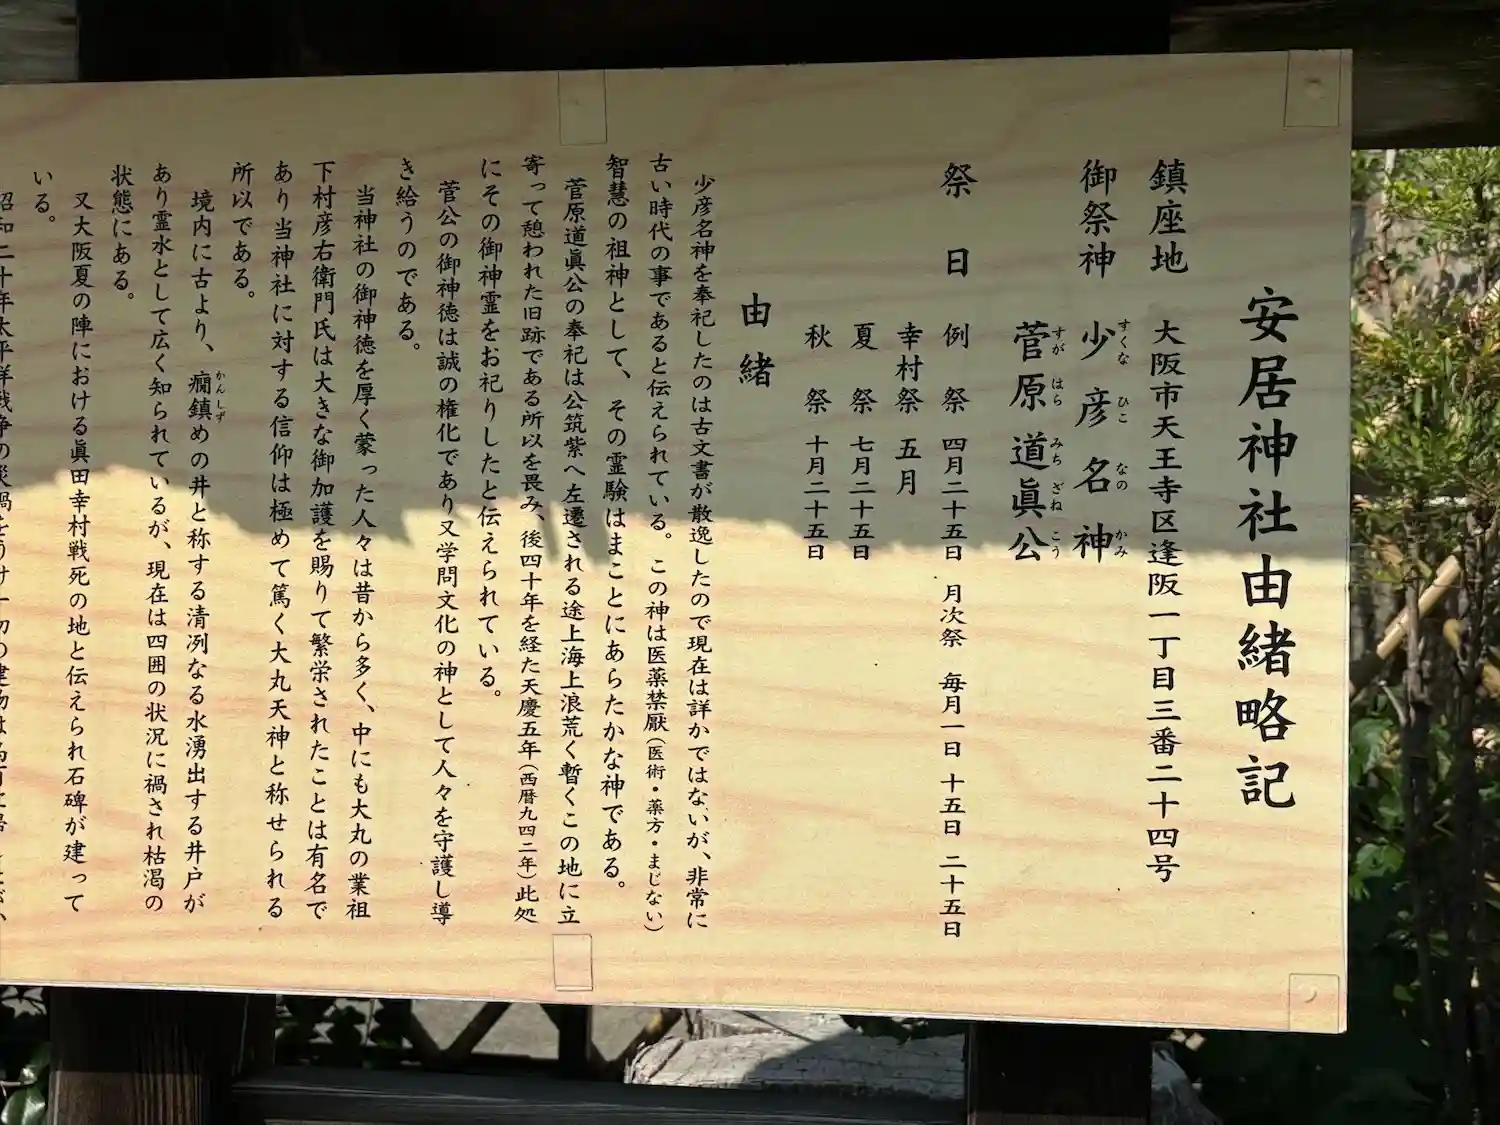 安居神社由緒略記
鎮座地 大阪市天王寺区逢阪一丁目三番二十四号
御祭神 少彦名神
すくな ひこ なの かみ
菅原道眞公
すが はら みち ざね こう
祭日 例祭 四月二十五日 月次祭 毎月一日 十五日 二十五日
幸村祭 五月
夏祭 七月二十五日
秋祭 十月二十五日
由緒
少彦名神を奉祀したのは古文書が散逸したので現在は詳かではないが、非常に
古い時代の事であると伝えられている。この神は医薬禁厭(医術・薬方・まじない)
智慧の祖神として、その霊験はまことにあらたかな神である。
菅原道眞公の奉祀は公筑紫へ左遷される途上海上浪荒く暫くこの地に立
寄って憩われた旧跡である所以を畏み、後四十年を経た天慶五年(西暦九四二年)此処
にその御神霊をお祀りしたと伝えられている。
菅公の御神徳は誠の権化であり又学問文化の神として人々を守護し導
き給うのである。
当神社の御神徳を厚く蒙った人々は昔から多く、中にも大丸の業祖
下村彦右衛門氏は大きな御加護を賜りて繁栄されたことは有名で
あり当神社に対する信仰は極めて篤く大丸天神と称せられる
所以である。
境内に古より、癇鎮めの井と称する清冽なる水湧出する井戸が
かんしず
あり霊水として広く知られているが、現在は四囲の状況に禍され枯渇の
状態にある。
又大阪夏の陣における眞田幸村戦死の地と伝えられ石碑が建って
いる。
昭和二十年太平洋戦争の災禍をうけ一切の建物は